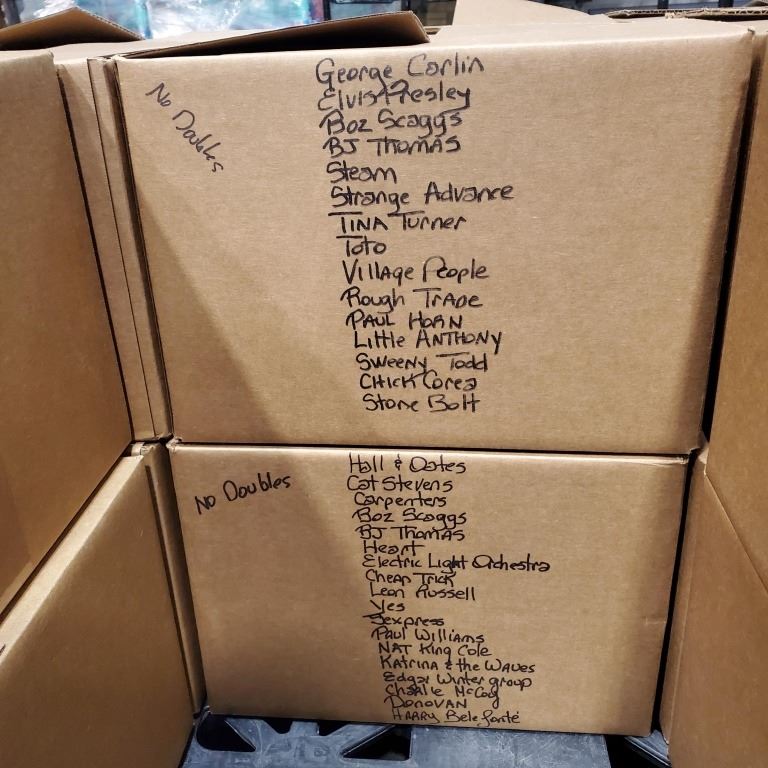 No Doubles
George Carlin
Elvis Presley
Boz Scaggs
BJ THOMAS
Steam
Strange Advance
TINA Turner
Toto
Village People
Rough TRADE
PAUL HORN
Little ANTHONY
Sweeny Todd
CHICK Corea
Stone Bolt
No Doubles
Hall & Oates
Cat Stevens
Carpenters
Boz Scaggs
BJ THOMAS
Heart
Electric Light Orchestra
Cheap Trick
Leon Russell
Yes
Sexpress
Paul Williams
NAT King Cole
Katrina & the WAVES
Edgar Winter group
Charlie McCoy
DONOVAN
HARRY Belefonté